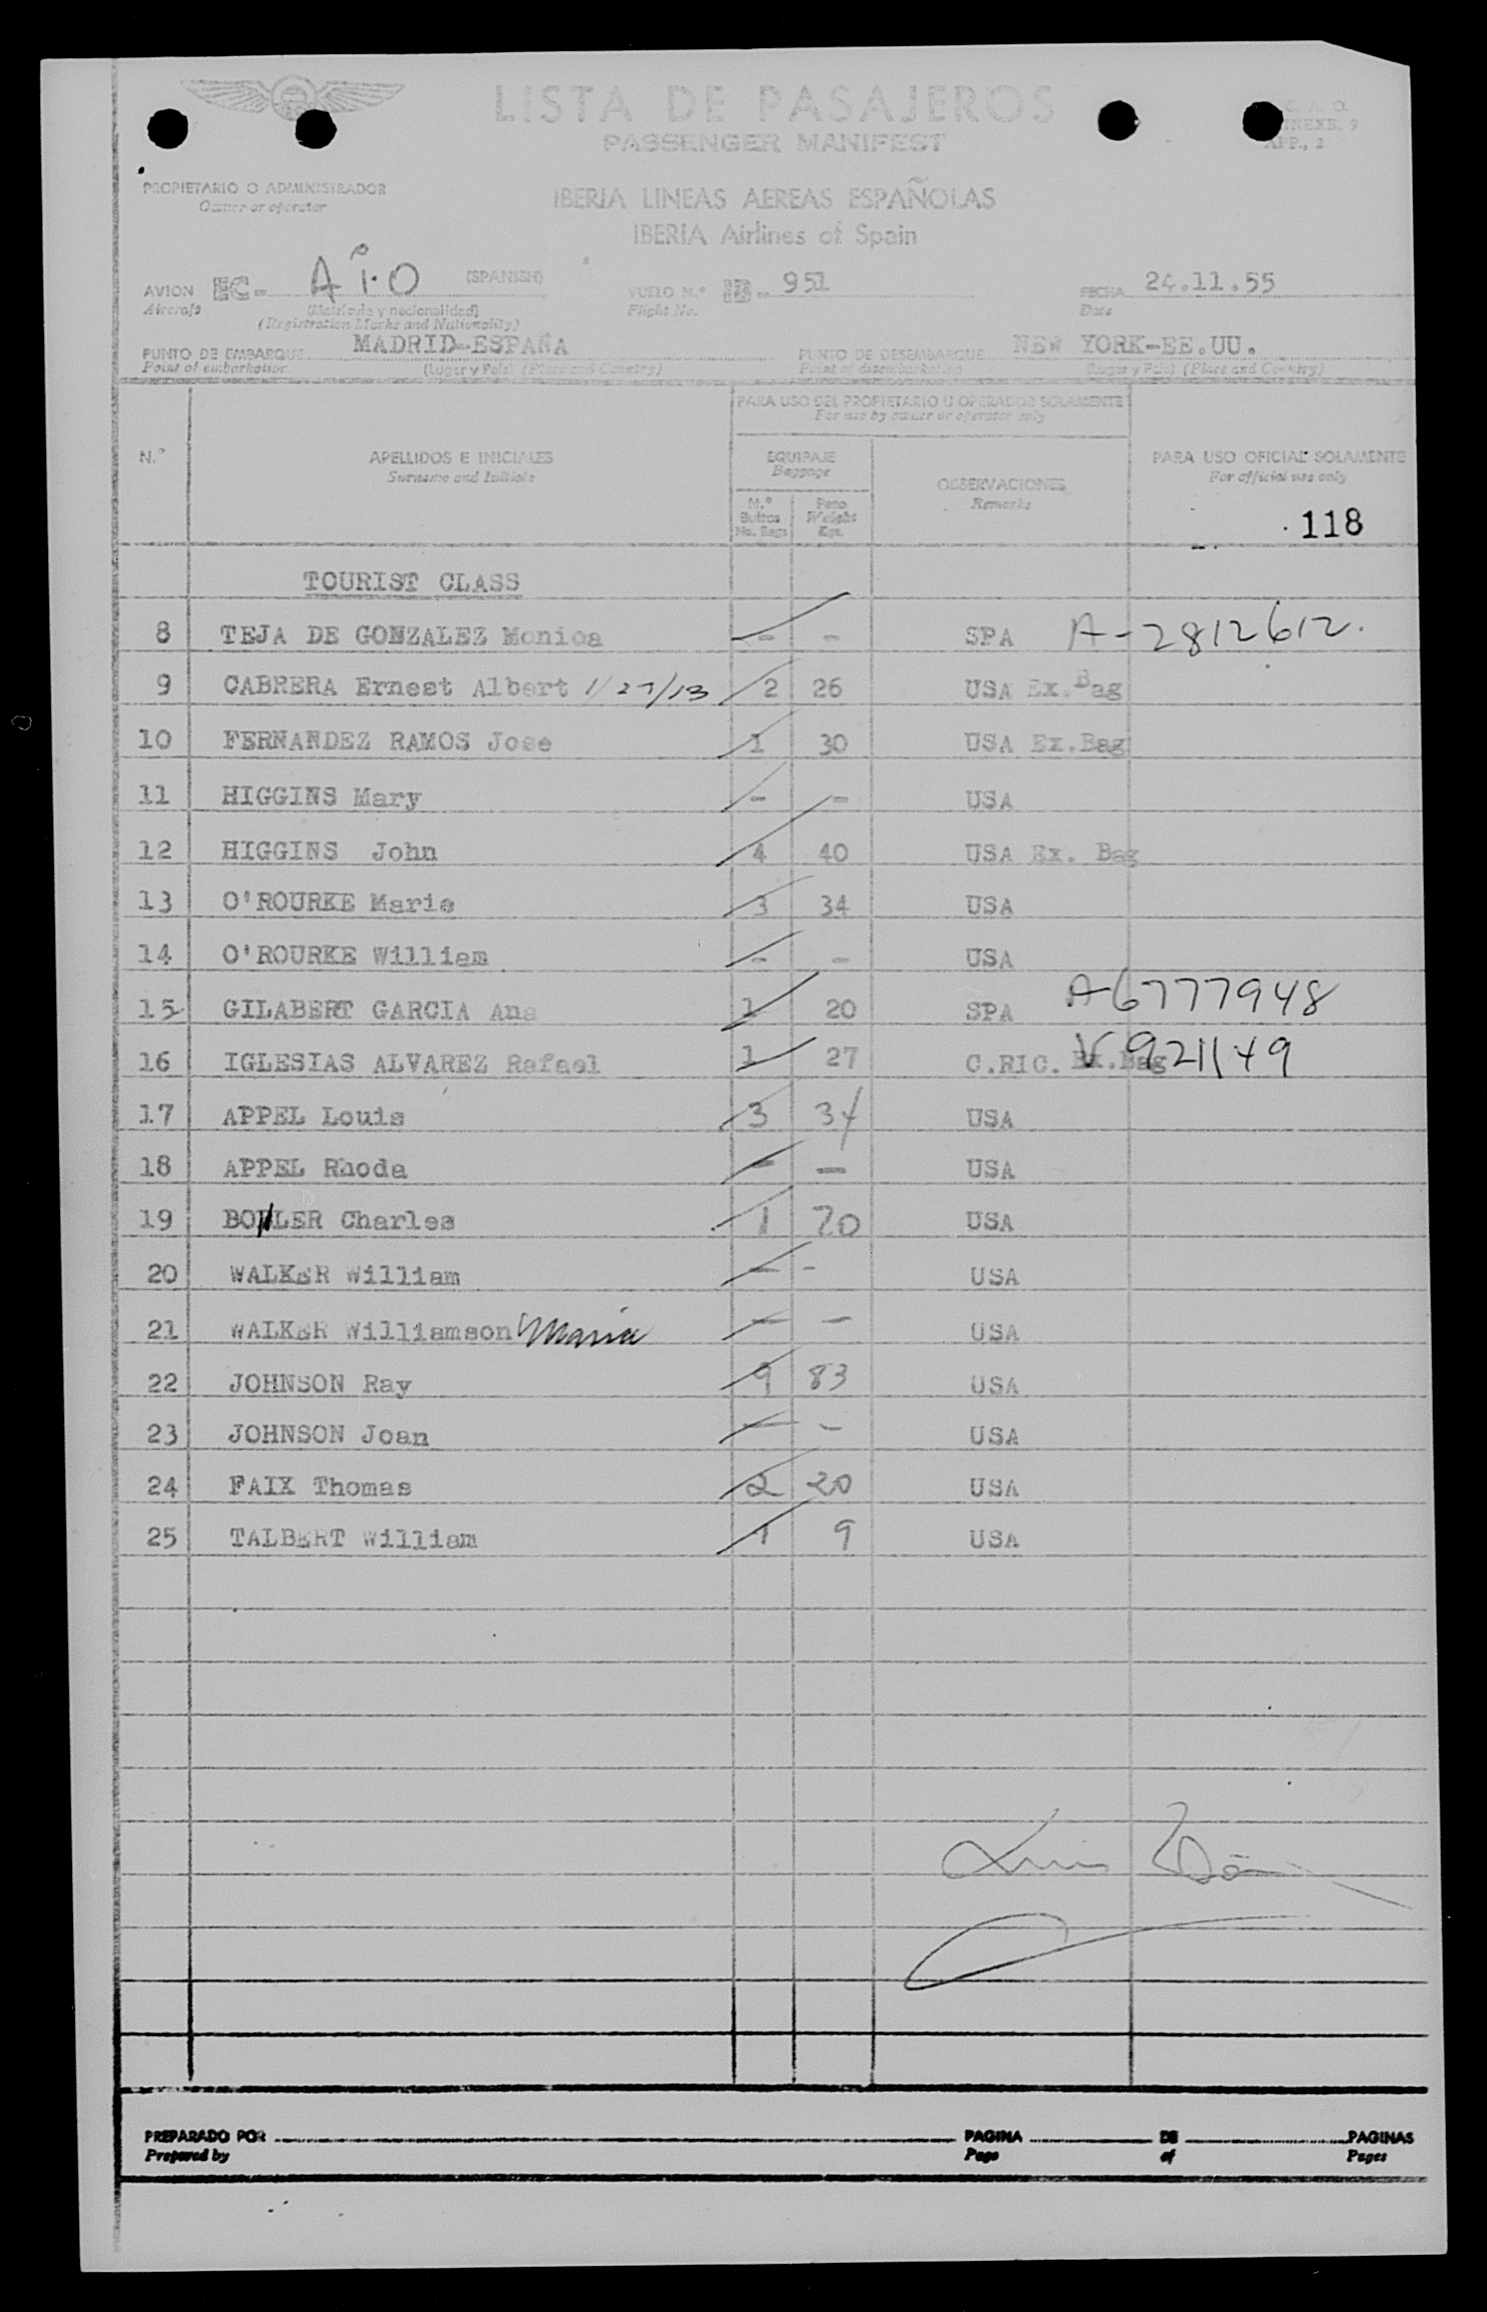 LISTA DE PASAJEROS
PASSENGER MANIFEST
PROPIETARIO O ADMINISTRADOR
Owner or operator
IBERIA LINEAS AEREAS ESPAÑOLAS
IBERIA Airlines of Spain
AVION EC- (SPANISH) VUELO N.º IB- 951 FECHA 24.11.55
Aircraft (Matrícula y nacionalidad) Flight No. Date
(Registration Marks and Nationality)
PUNTO DE EMBARQUE MADRID-ESPAÑA PUNTO DE DESEMBARQUE NEW YORK-EE.UU.
Point of embarkation (Lugar y País) (Place and Country) Point of disembarkation (Lugar y País) (Place and Country)
PARA USO DEL PROPIETARIO U OPERADOR SOLAMENTE
For use by owner or operator only
N.º APELLIDOS E INICIALES EQUIPAJE OBSERVACIONES PARA USO OFICIAL SOLAMENTE
Surname and Initials Baggage Remarks For official use only
N.º Bultos No. Bags Peso Weight Kgs. 118
TOURIST CLASS
8 TEJA DE GONZALEZ Monica - - SPA A-2812612.
9 CABRERA Ernest Albert 1/27/13 2 26 USA Ex.Bag
10 FERNANDEZ RAMOS Jose 1 30 USA Ex.Bag
11 HIGGINS Mary - - USA
12 HIGGINS John 4 40 USA Ex. Bag
13 O'ROURKE Marie 3 34 USA
14 O'ROURKE William - - USA
15 GILABERT GARCIA Ana 1 20 SPA A6777948
16 IGLESIAS ALVAREZ Rafael 1 27 C.RIC. Ex.Bag V921149
17 APPEL Louis 3 34 USA
18 APPEL Rhoda - - USA
19 Charles 1 20 USA
20 WALKER William - - USA
21 WALKER Williamson Maria - - USA
22 JOHNSON Ray 9 83 USA
23 JOHNSON Joan - - USA
24 FAIX Thomas 2 20 USA
25 TALBERT William 1 9 USA
Luis
PREPARADO POR PAGINA DE PAGINAS
Prepared by Page of Pages